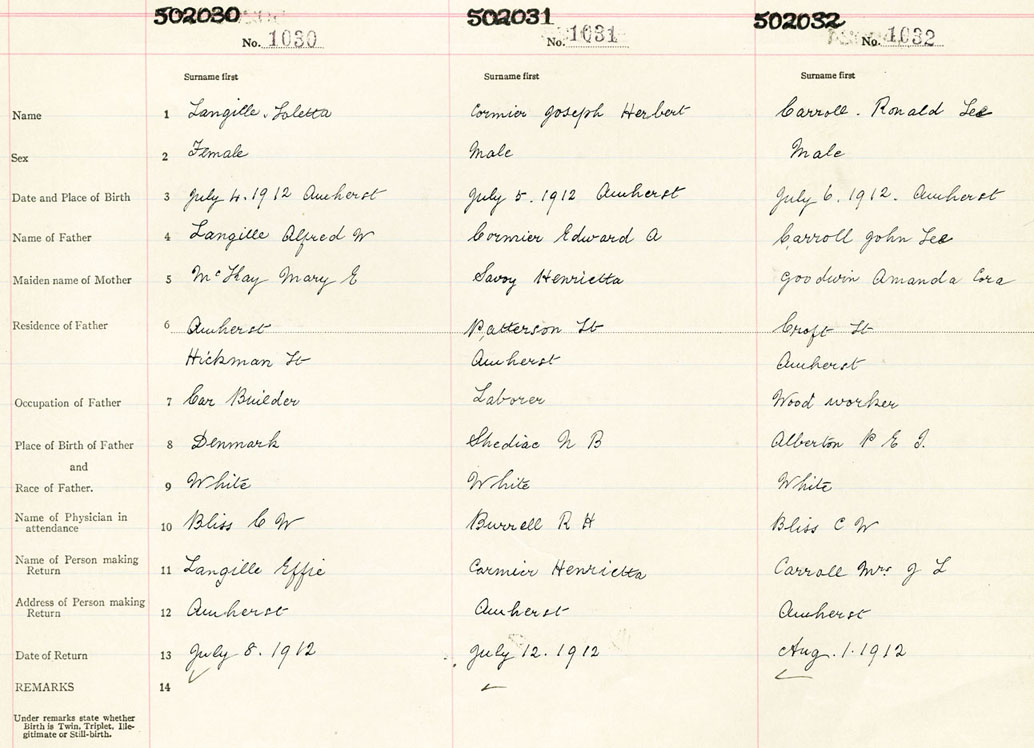 502030 502031 502032
No. 1030 No. 1031 No. 1032
Surname first Surname first Surname first
Name 1 Langille. Loletta Cormier Joseph Herbert Carroll. Ronald Lee
Sex 2 Female Male Male
Date and Place of Birth 3 July 4. 1912 Amherst July 5. 1912 Amherst July 6. 1912. Amherst
Name of Father 4 Langille Alfred W Cormier Edward A Carroll John Lee
Maiden name of Mother 5 McKay Mary E Savoy Henrietta Goodwin Amanda Cora
Residence of Father 6 Amherst Patterson St Croft St
Hickman St Amherst Amherst
Occupation of Father 7 Car Builder Laborer Wood worker
Place of Birth of Father 8 Denmark Shediac N B Alberton P E I.
and
Race of Father. 9 White White White
Name of Physician in
attendance 10 Bliss C W Burrell R H Bliss C W
Name of Person making
Return 11 Langille Effie Cormier Henrietta Carroll Mrs J L
Address of Person making
Return 12 Amherst Amherst Amherst
Date of Return 13 July 8. 1912 July 12. 1912 Aug. 1. 1912
REMARKS 14
Under remarks state whether
Birth is Twin, Triplet, Ille-
gitimate or Still-birth.